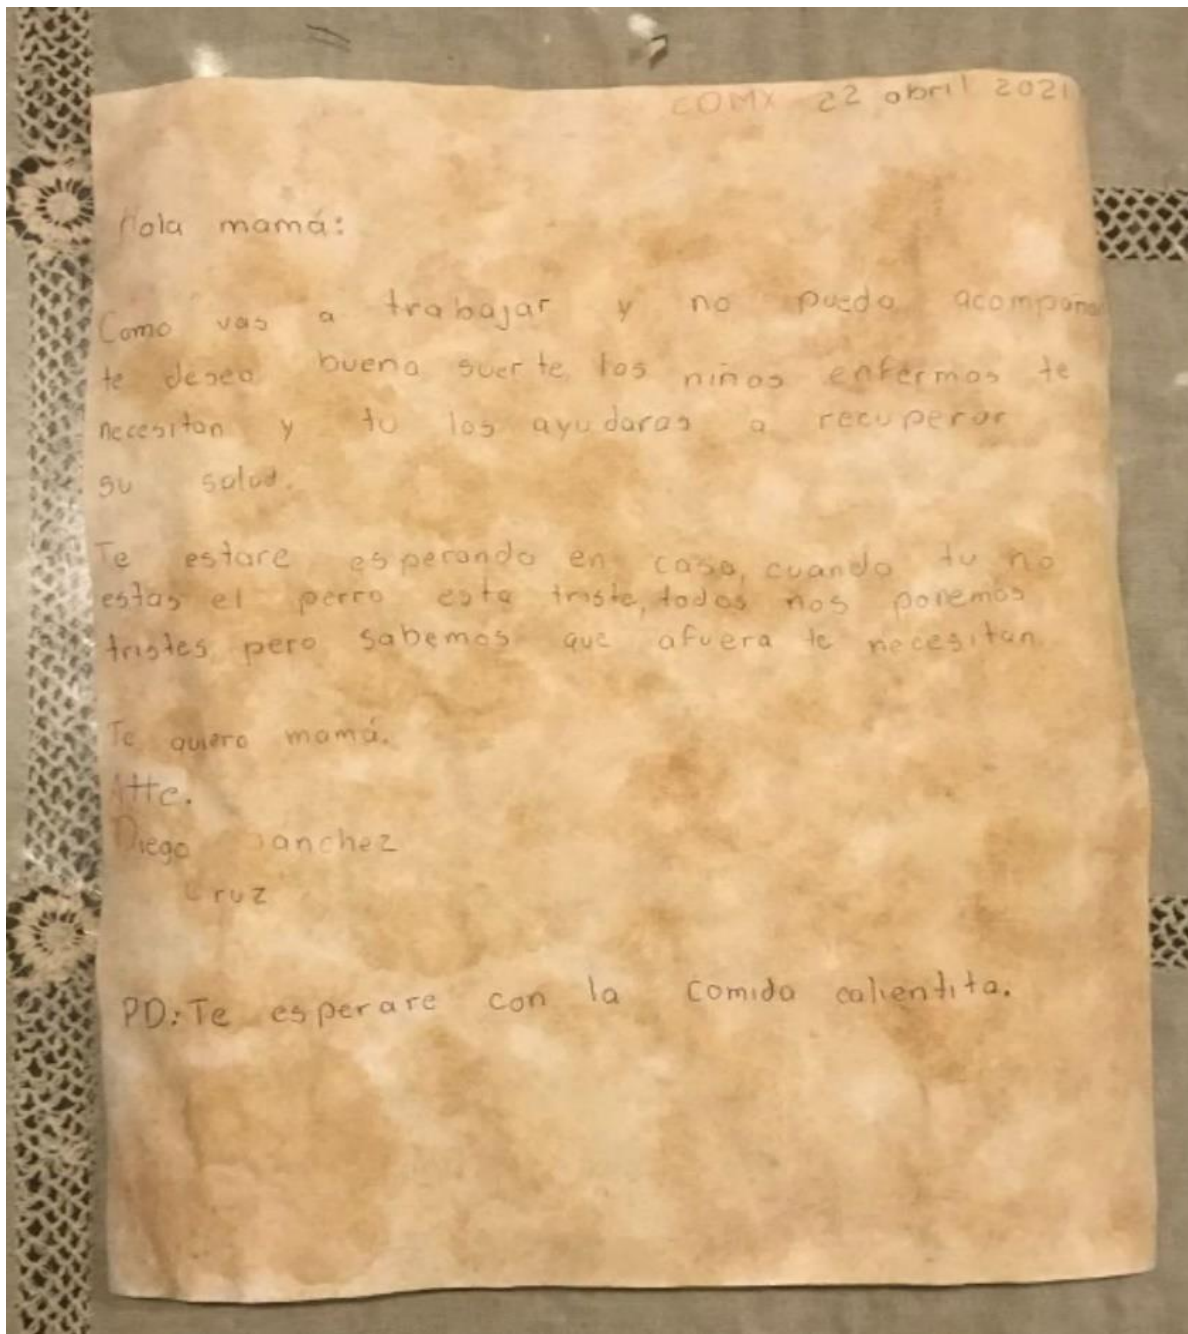 CDMX 22 abril 2021
Hola mamá:
Como vas a trabajar y no puedo acompañar
te deseo buena suerte, los niños enfermos te
necesitan y tu los ayudaras a recuperar
su salud.
Te estare esperando en casa, cuando tu no
estas el perro esta triste, todos nos ponemos
tristes pero sabemos que afuera te necesitan.
Te quiero mamá.
Atte.
Diego Sanchez
Cruz
PD: Te esperare con la comida calientita.